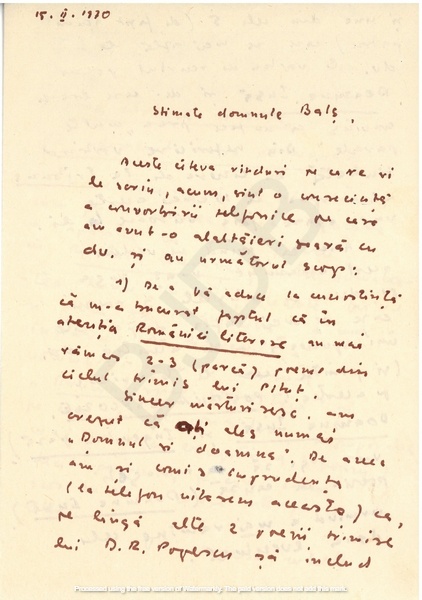 15. II. 1970
Stimate domnule Balș,
Aceste cîteva rînduri pe care vi
le scriu, acum, sînt o consecință
a convorbirii telefonice pe care
am avut-o alaltăieri seară cu
dv. și au următorul scop:
1) De a vă aduce la cunoștință
că m-a bucurat faptul că în
atenția României literare au mai
rămas 2-3 (parcă) poeme din
ciclul trimis lui Pituț.
Sincer mărturisesc, am
crezut că ați ales numai
„Domnul și doamna". De aceea
am și comis imprudența
(la telefon uitasem aceasta) ca,
pe lîngă alte 2 poezii trimise
lui D. R. Popescu să includ
BJDB